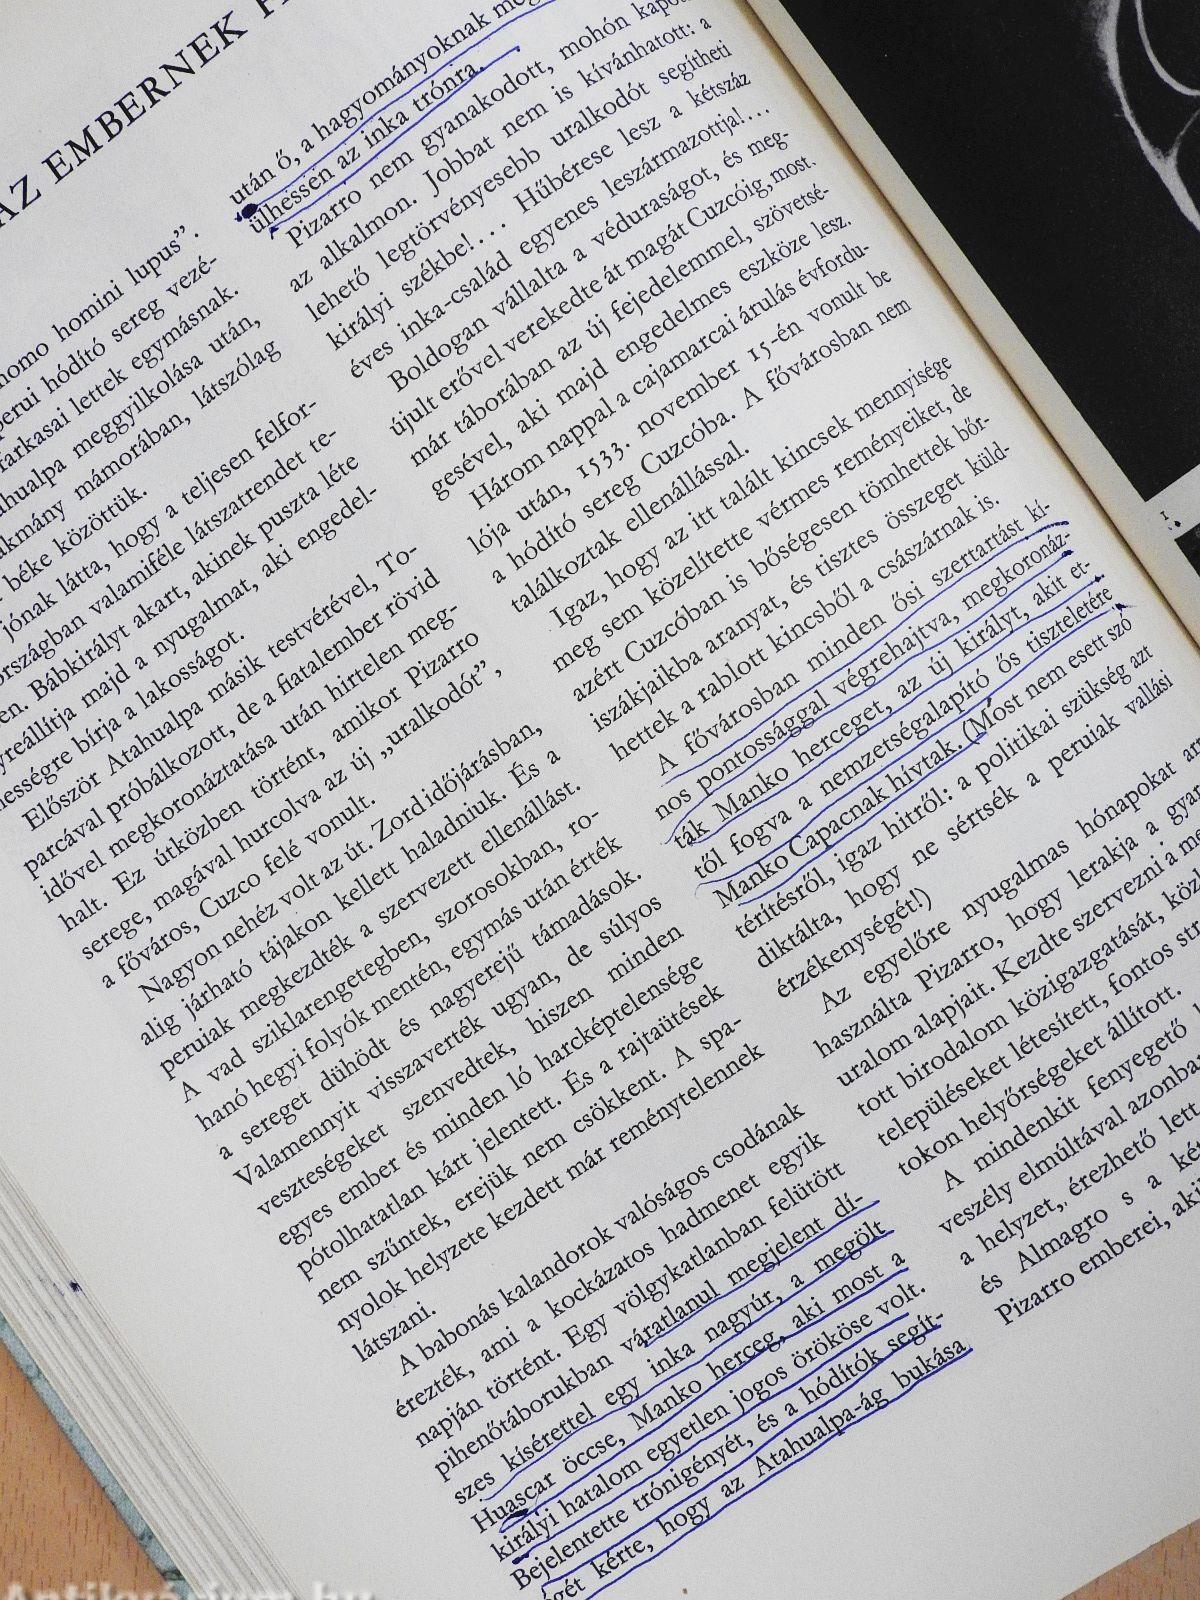 AZ EMBERNEK
homo homini lupus”.
perui hódító sereg vezé-
farkasai lettek egymásnak.
meggyilkolása után,
mámorában, látszólag
béke közöttük.
jónak látta, hogy a teljesen felfor-
országban valamiféle látszatrendet te-
Bábkirályt akart, akinek puszta léte
majd a nyugalmat, aki engedel-
bírja a lakosságot.
Először Atahualpa másik testvérével, To-
parcával próbálkozott, de a fiatalember rövid
idővel megkoronáztatása után hirtelen meg-
halt. Ez útközben történt, amikor Pizarro
serege, magával hurcolva az új „uralkodót”,
a főváros, Cuzco felé vonult.
Nagyon nehéz volt az út. Zord időjárásban,
alig járható tájakon kellett haladniuk. És a
peruiak megkezdték a szervezett ellenállást.
A vad sziklarengetegben, szorosokban, ro-
hanó hegyi folyók mentén, egymás után érték
a sereget dühödt és nagyerejű támadások.
Valamennyit visszaverték ugyan, de súlyos
veszteségeket szenvedtek, hiszen minden
egyes ember és minden ló harcképtelensége
pótolhatatlan kárt jelentett. És a rajtaütések
nem szűntek, erejük nem csökkent. A spa-
nyolok helyzete kezdett már reménytelennek
látszani.
A babonás kalandorok valóságos csodának
érezték, ami a kockázatos hadmenet egyik
napján történt. Egy völgykatlanban felütött
pihenőtáborukban váratlanul megjelent dí-
szes kísérettel egy inka nagyúr, a megölt
Huascar öccse, Manko herceg, aki most a
királyi hatalom egyetlen jogos örököse volt.
Bejelentette trónigényét, és a hódítók segít-
ségét kérte, hogy az Atahualpa-ág bukása
után ő, a hagyományoknak
ülhessen az inka trónra.
Pizarro nem gyanakodott, mohón
az alkalmon. Jobbat nem is kívánhatott: a
lehető legtörvényesebb uralkodót segítheti
királyi székbe!... Hűbérese lesz a kétszáz
éves inka-család egyenes leszármazottja!...
Boldogan vállalta a véduraságot, és meg-
újult erővel verekedte át magát Cuzcóig, most.
már táborában az új fejedelemmel, szövetsé-
gesével, aki majd engedelmes eszköze lesz.
Három nappal a cajamarcai árulás évfordu-
lója után, 1533. november 15-én vonult be
a hódító sereg Cuzcóba. A fővárosban nem
találkoztak ellenállással.
Igaz, hogy az itt talált kincsek mennyisége
meg sem közelítette vérmes reményeiket, de
azért Cuzcóban is bőségesen tömhettek bőr-
iszákjaikba aranyat, és tisztes összeget küld-
hettek a rablott kincsből a császárnak is.
A fővárosban minden ősi szertartást kí-
nos pontossággal végrehajtva, megkoronáz-
ták Manko herceget, az új királyt, akit et-
től fogva a nemzetségalapító ős tiszteletére
Manko Capacnak hívtak. (Most nem esett szó
térítésről, igaz hitről: a politikai szükség azt
diktálta, hogy ne sértsék a peruiak vallási
érzékenységét!)
Az egyelőre nyugalmas hónapokat
használta Pizarro, hogy lerakja a
uralom alapjait. Kezdte szervezni a
tott birodalom közigazgatását,
településeket létesített, fontos
tokon helyőrségeket állított.
A mindenkit fenyegető
veszély elmúltával
a helyzet, érezhető lett
és Almagro s a
Pizarro emberei,
1